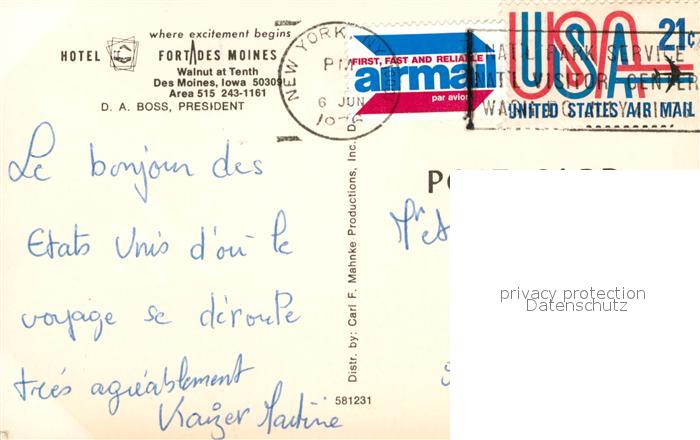 where excitement begins
HOTEL FORT DES MOINES
Walnut at Tenth
Des Moines, Iowa 50309
Area 515 243-1161
D. A. BOSS, PRESIDENT
NEW YORK, NY
PM
6 JUN
FIRST, FAST AND RELIABLE
airmail
par avion
USA 21c
UNITED STATES AIR MAIL
NAT'L PARK SERVICE
NAT'L VISITOR CENTER
Le bonjour des
Etats Unis d'où le
voyage se déroule
très agréablement
Kayzer Martine
Distr. by: Carl F. Mahnke Productions, Inc.,
581231
POST CARD
Mr et
privacy protection
Datenschutz